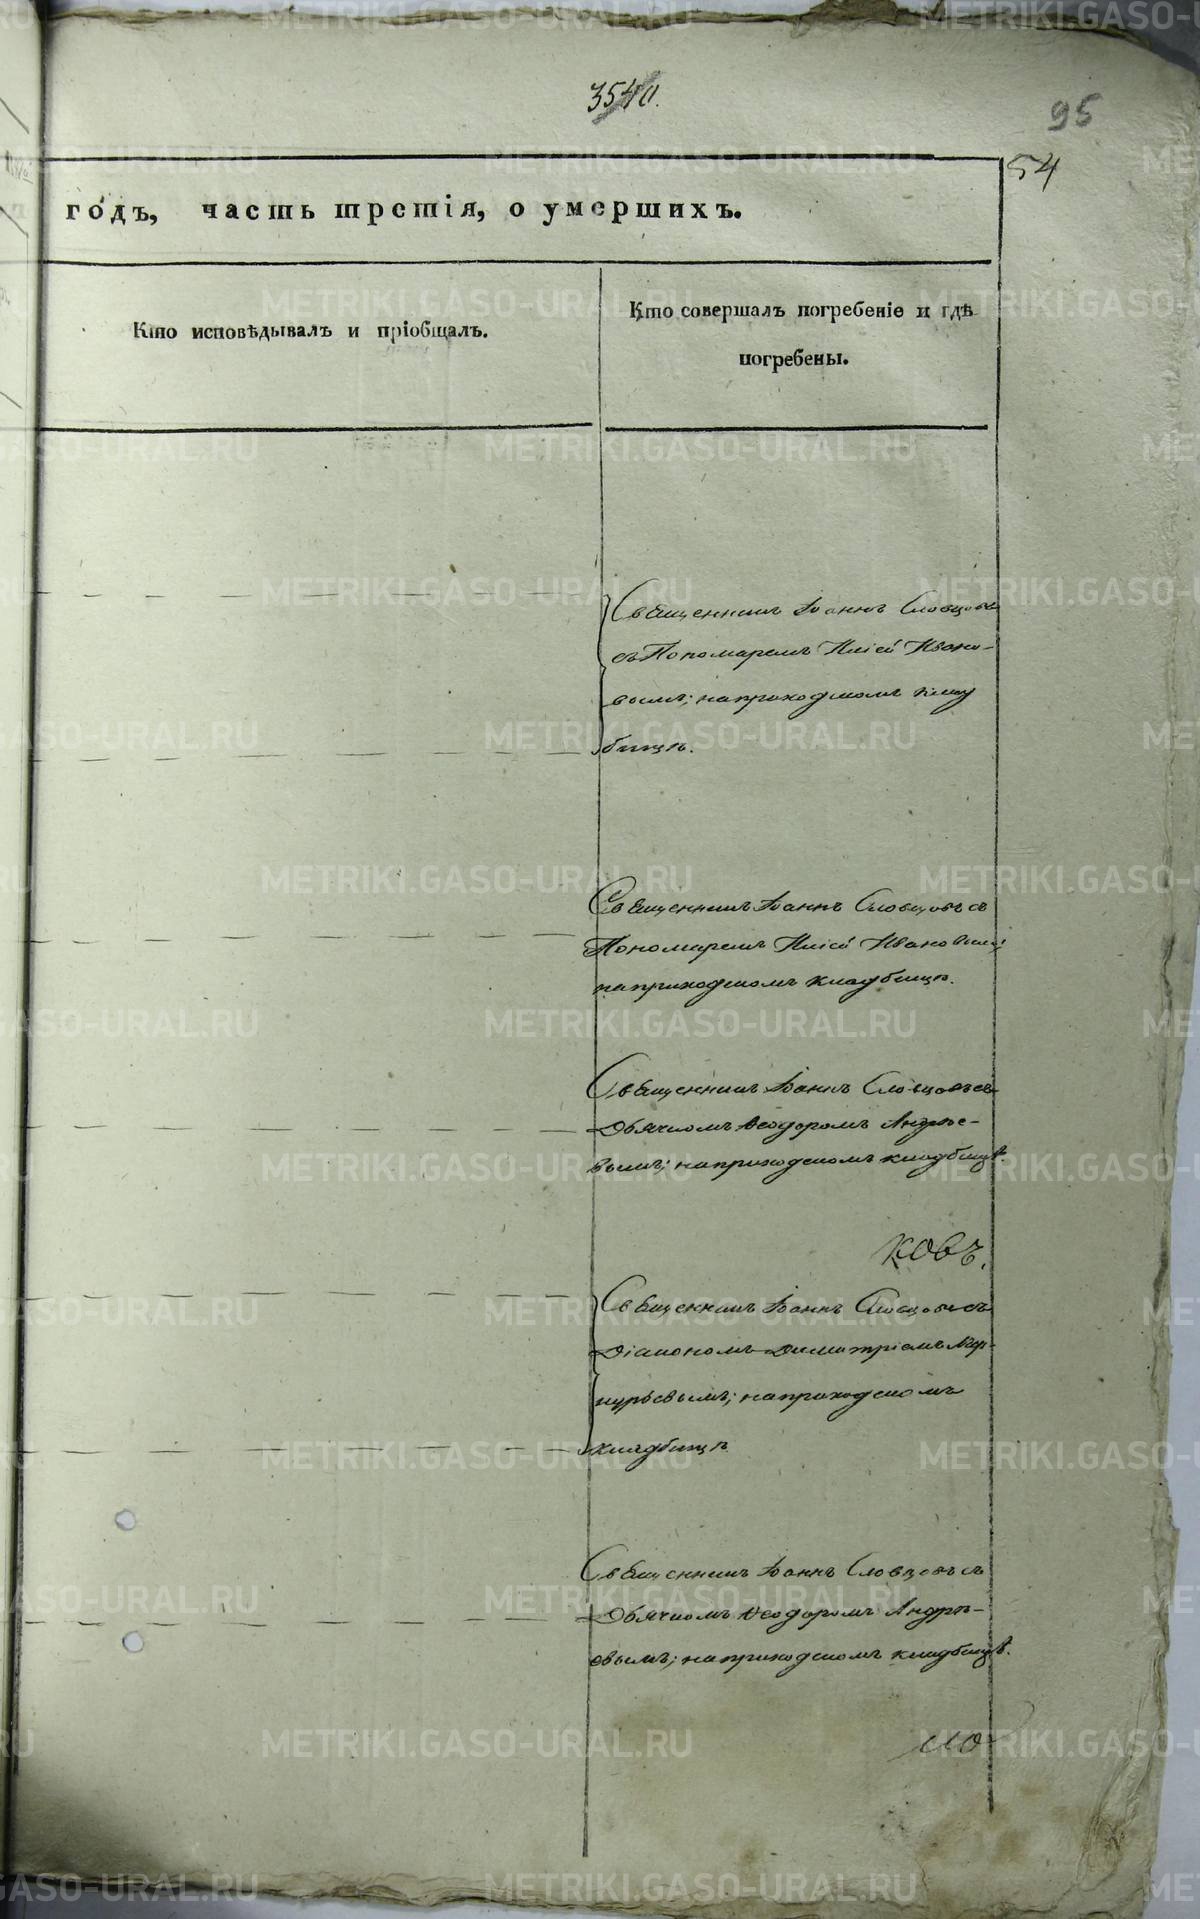 354 о.
95
54
годъ, часть третія, о умершихъ.
Кто исповѣдывалъ и пріобщалъ.
Кто совершалъ погребеніе и гдѣ
погребены.
Священникъ Іоаннъ Словцовъ
съ Пономаремъ Иліей Ивано-
вымъ; на приходскомъ клад
бищѣ.
Священникъ Іоаннъ Словцовъ съ
Пономаремъ Иліей Ивановымъ;
на приходскомъ кладбищѣ.
Священникъ Іоаннъ Словцовъ съ
Дьячкомъ Ѳеодоромъ Андрѣе-
вымъ; на приходскомъ кладбищѣ.
ковъ.
Священникъ Іоаннъ Словцовъ съ
Діакономъ Димитріемъ Мер-
курьевымъ; на приходскомъ
кладбищѣ
Священникъ Іоаннъ Словцовъ съ
Дьячкомъ Ѳеодоромъ Андрѣ-
евымъ; на приходскомъ кладбищѣ.
METRIKI.GASO-URAL.RU